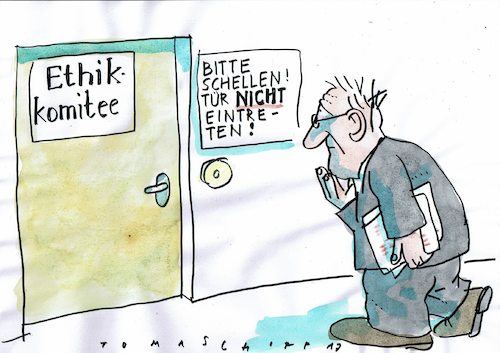 Ethik-
komitee
BITTE
SCHELLEN!
TÜR NICHT
EINTRE-
TEN!
TOMASCHOFF 17